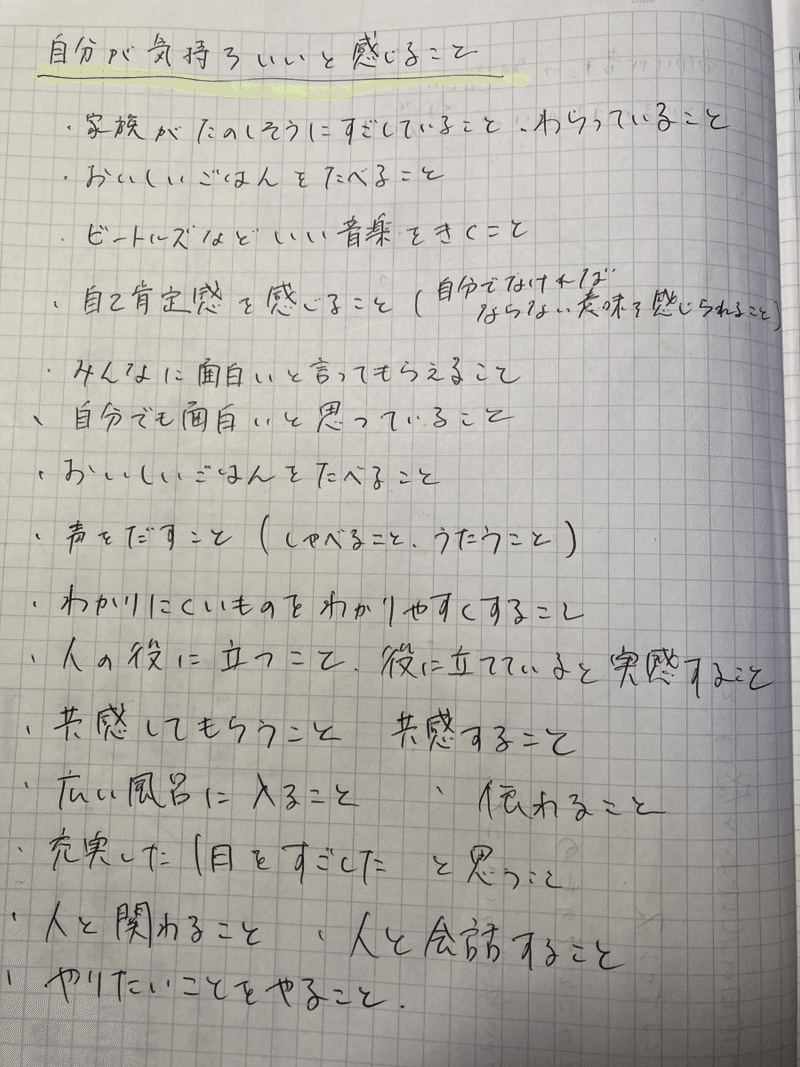 自分が気持ちいいと感じること
・家族がたのしそうにすごしていること、わらっていること
・おいしいごはんをたべること
・ビートルズなどいい音楽をきくこと
・自己肯定感を感じること（自分でなければ
ならない意味を感じられること）
・みんなに面白いと言ってもらえること
・自分でも面白いと思っていること
・おいしいごはんをたべること
・声をだすこと（しゃべること、うたうこと）
・わかりにくいものをわかりやすくすること
・人の役に立つこと、役に立てていると実感すること
・共感してもらうこと 共感すること
・広い風呂に入ること ・伝わること
・充実した1日をすごした と思うこと
・人と関わること ・人と会話すること
・やりたいことをやること.